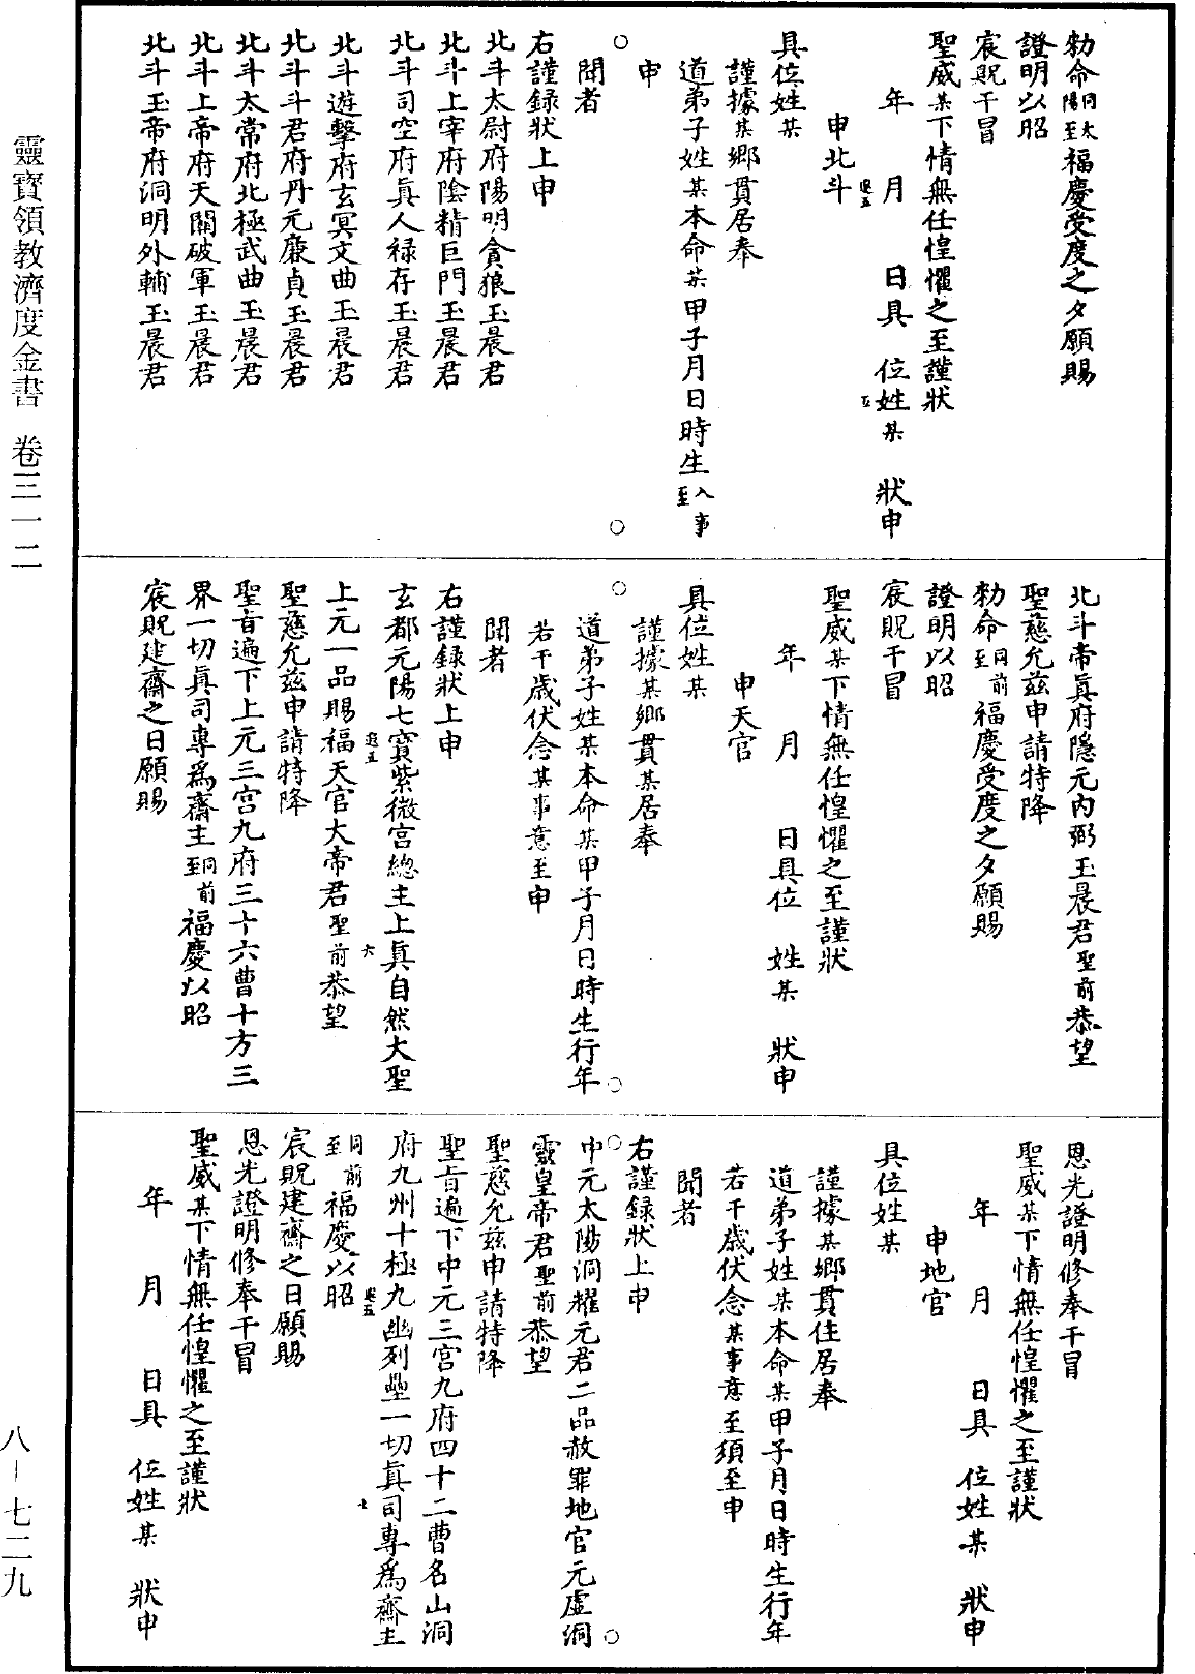 勑命同太陽至福慶受度之夕願賜
證明以昭
宸貺干冒
聖威某下情無任惶懼之至謹狀
年　月　日具　位姓某　狀申
申北斗
具位姓某
謹據某鄉貫居奉
道弟子姓某本命某甲子月日時生入事至
申
聞者
右謹録狀上申
北斗太尉府陽明貪狼玉晨君
北斗上宰府陰精巨門玉晨君
北斗司空府眞人禄存玉晨君
北斗遊擊府玄冥文曲玉晨君
北斗斗君府丹元廉貞玉晨君
北斗太常府北極武曲玉晨君
北斗上帝府天關破軍玉晨君
北斗玉帝府洞明外輔玉晨君
北斗帝眞府隱元内弼玉晨君聖前恭望
聖慈允兹申請特降
勑命同前至福慶受度之夕願賜
證明以昭
宸貺干冒
聖威某下情無任惶懼之至謹狀
年　月　日具位　姓某　狀申
申天官
具位姓某
謹據某鄉貫某居奉
道弟子姓某本命某甲子月日時生行年
若干歲伏念某事意至申
聞者
右謹録狀上申
玄都元陽七寶紫微宮總主上眞自然大聖
上元一品賜福天官大帝君聖前恭望
聖慈允兹申請特降
聖旨遍下上元三宮九府三十六曹十方三
界一切眞司專爲齋主同前至福慶以昭
宸貺建齋之日願賜
恩光證明修奉干冒
聖威某下情無任惶懼之至謹狀
年　月　日具　位姓某　狀申
申地官
具位姓某
謹據某鄉貫住居奉
道弟子姓某本命某甲子月日時生行年
若干歲伏念某事意至須至申
聞者
右謹録狀上申
中元太陽洞耀元君二品赦罪地官元虛洞
靈皇帝君聖前恭望
聖慈允兹申請特降
聖旨遍下中元三宮九府四十二曹名山洞
府九州十極九幽列壘一切眞司專爲齋主
同前至福慶以昭
宸貺建齋之日願賜
恩光證明修奉干冒
聖威某下情無任惶懼之至謹狀
年　月　日具　位姓某　狀申
靈寶領教濟度金書　卷三一二
八－七二九